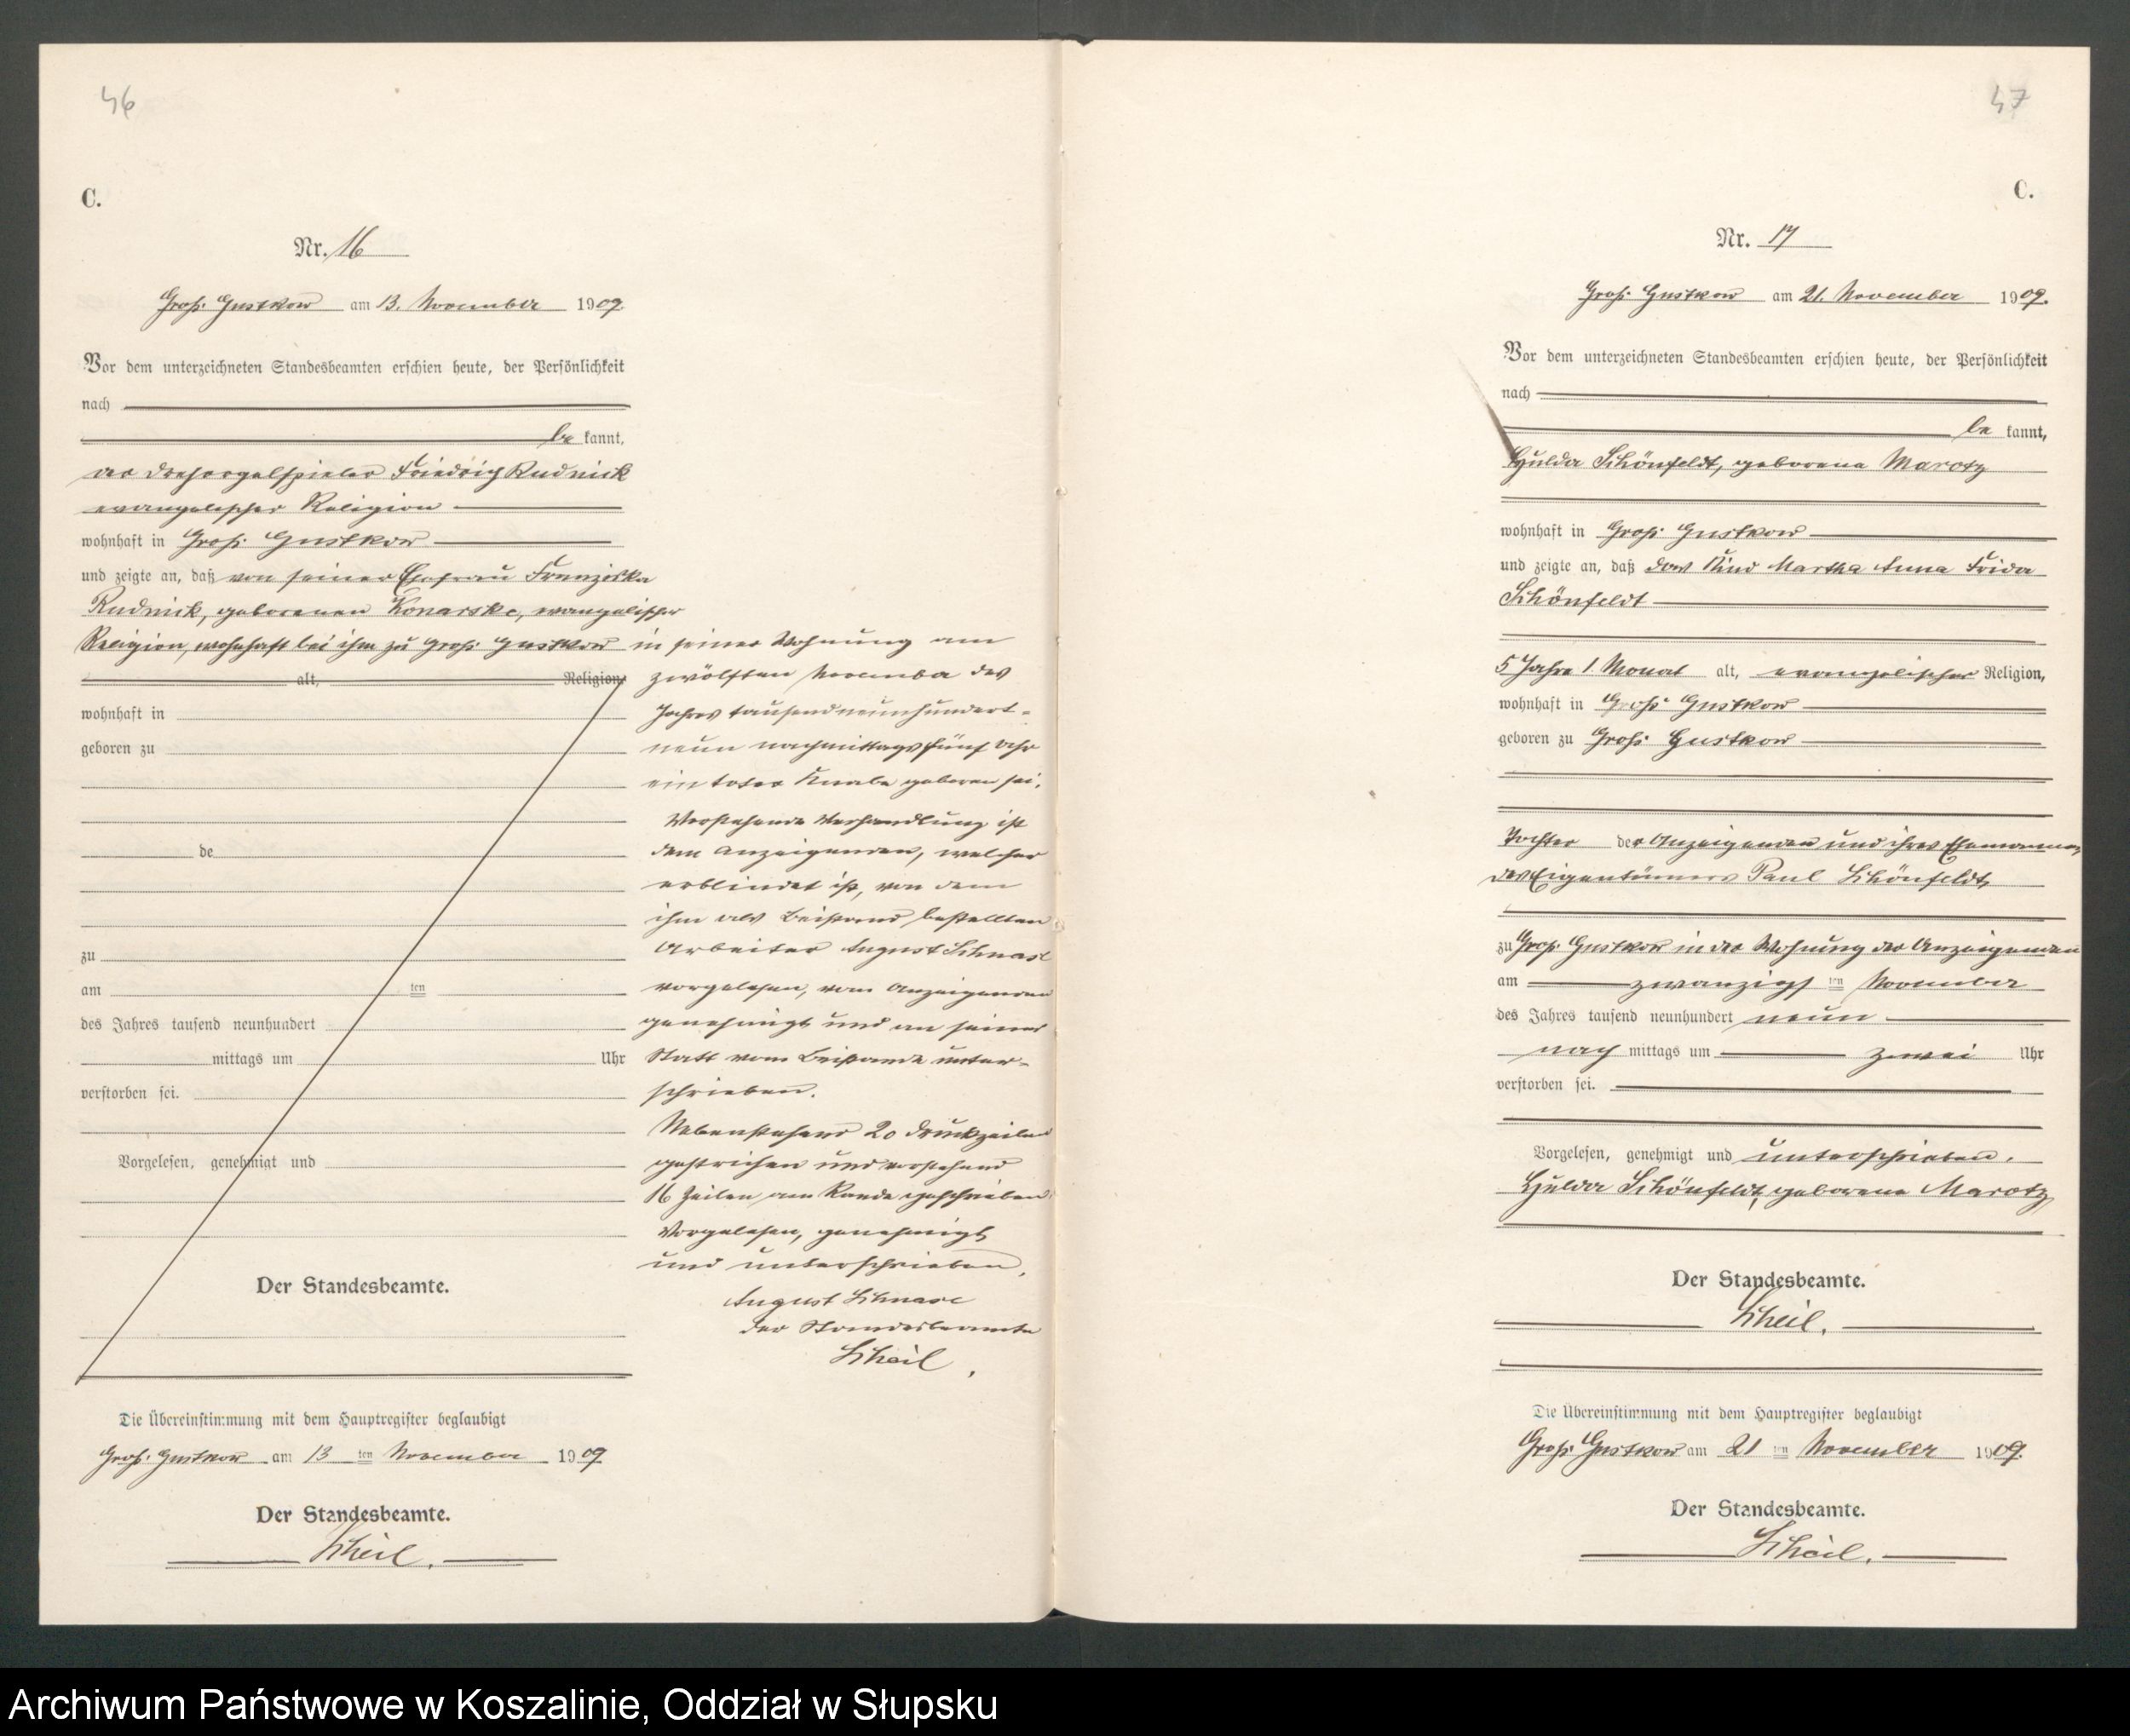 46
C.
Nr. 16
Groß Gustkow am 13. November 1909.
Vor dem unterzeichneten Standesbeamten erschien heute, der Persönlichkeit
nach
be kannt,
der Drehorgelspieler Friedrich Rudnick
evangelischer Religion
wohnhaft in Groß Gustkow
und zeigte an, daß von seiner Ehefrau Franziska
Rudnick, geborenen Konarske, evangelischer
Religion, wohnhaft bei ihm zu Groß Gustkow in seiner Wohnung am
alt, Religion, zwölften November des
wohnhaft in
Jahres tausendneunhundert-
geboren zu
neun nachmittags fünf Uhr
ein toter Knabe geboren sei.
Vorstehende Verhandlung ist
de
dem Anzeigenden, welcher
erblindet ist, von dem
ihm als Beistand bestellten
Arbeiter August Schnase
zu
am ten
vorgelesen, vom Anzeigenden
des Jahres tausend neunhundert
genehmigt und an seiner
mittags um Uhr
Statt vom Beistande unter-
verstorben sei.
schrieben.
Nebenstehend 20 Druckzeilen
Vorgelesen, genehmigt und
gestrichen und vorstehend
16 Zeilen am Rande geschrieben
Vorgelesen, genehmigt
und unterschrieben,
Der Standesbeamte.
August Schnase
der Standesbeamte
Scheil.
Die Übereinstimmung mit dem Hauptregister beglaubigt
Groß Gustkow am 13 ten November 1909
Der Standesbeamte.
Scheil.
47
C.
Nr. 17
Groß Gustkow am 21. November 1909.
Vor dem unterzeichneten Standesbeamten erschien heute, der Persönlichkeit
nach
be kannt,
Hulda Schönfeldt, geborene Marotz
wohnhaft in Groß Gustkow
und zeigte an, daß das Kind Martha Anna Frida
Schönfeldt
5 Jahre 1 Monat alt, evangelischer Religion,
wohnhaft in Groß Gustkow
geboren zu Groß Gustkow
Tochter der Anzeigenden und ihres Ehemannes,
des Eigentümers Paul Schönfeldt,
zu Groß Gustkow in der Wohnung der Anzeigenden
am zwanzigs ten November
des Jahres tausend neunhundert neun
nach mittags um zwei Uhr
verstorben sei.
Vorgelesen, genehmigt und unterschrieben.
Hulda Schönfeldt, geborene Marotz
Der Standesbeamte.
Scheil.
Die Übereinstimmung mit dem Hauptregister beglaubigt
Groß Gustkow am 21 ten November 1909.
Der Standesbeamte.
Scheil.
Archiwum Państwowe w Koszalinie, Oddział w Słupsku